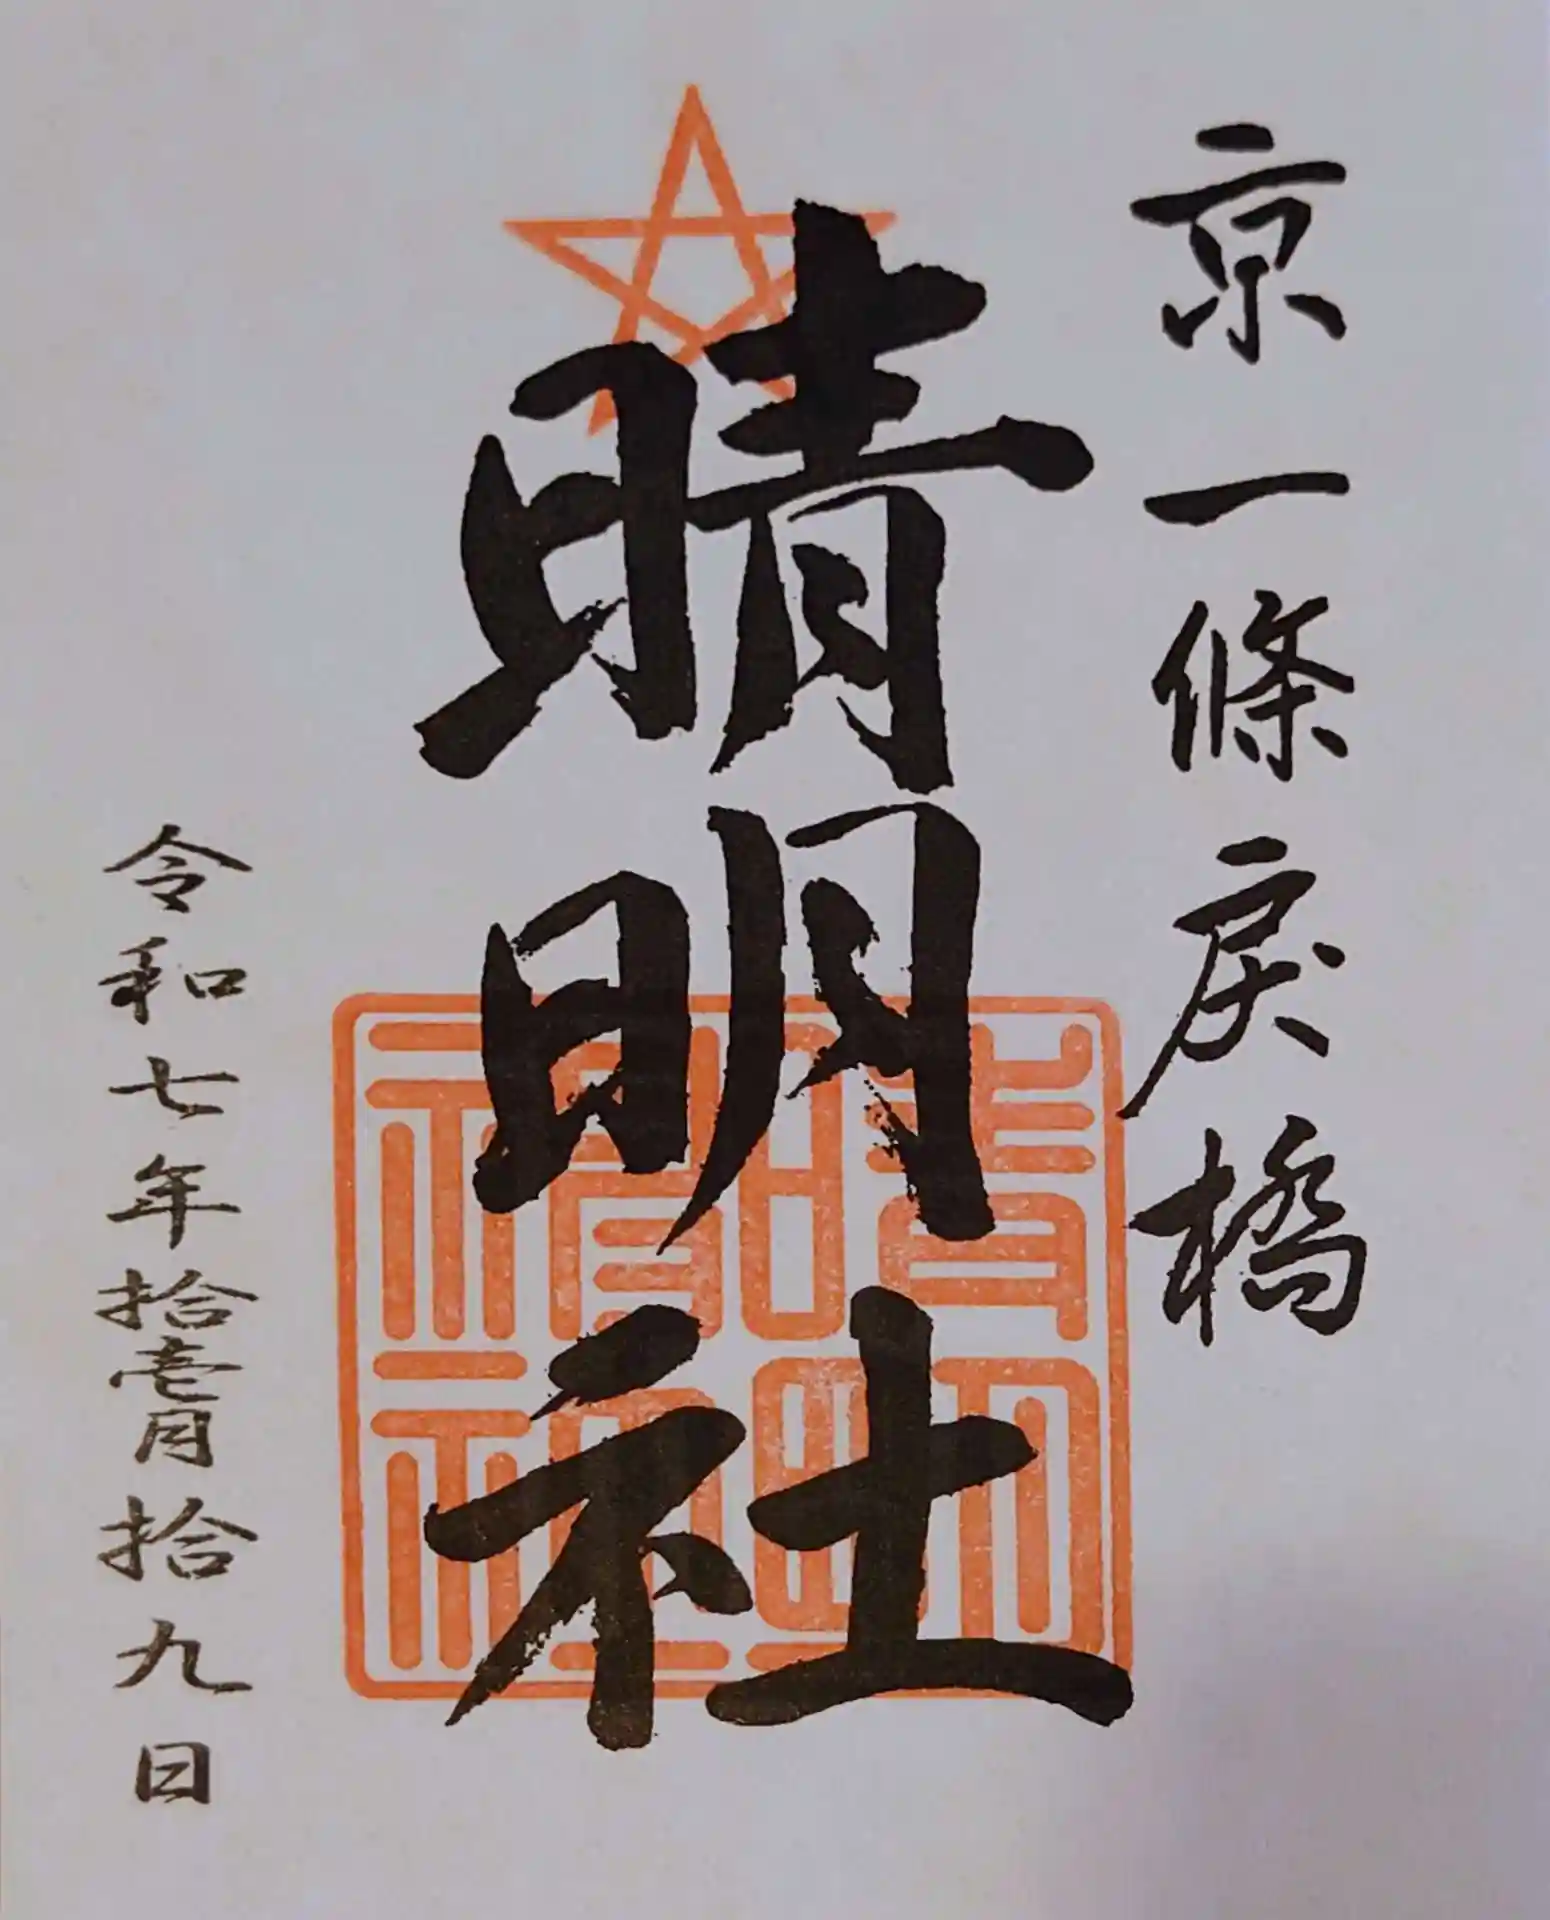 京一條戻橋
晴明社
晴明神社
令和七年拾壱月拾九日